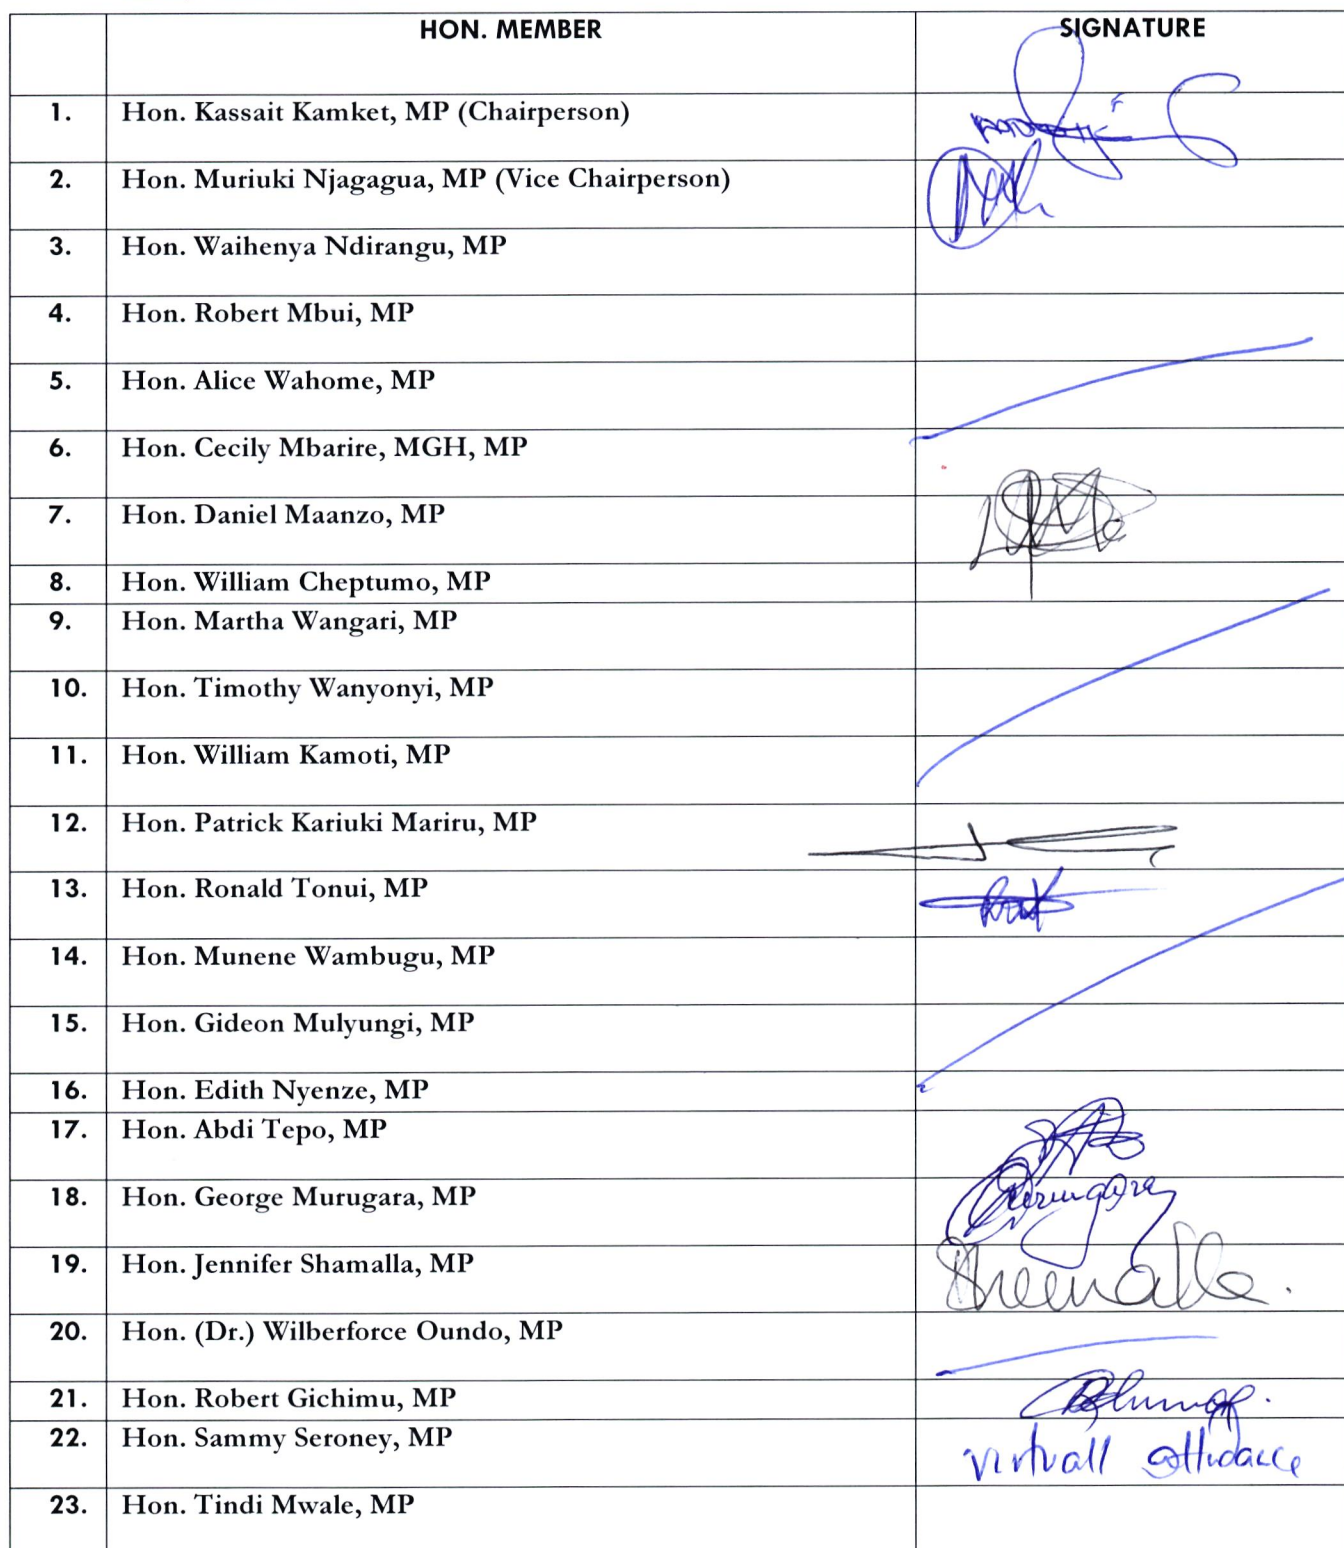 HON. MEMBER SIGNATURE
1. Hon. Kassait Kamket, MP (Chairperson)
2. Hon. Muriuki Njagagua, MP (Vice Chairperson)
3. Hon. Waihenya Ndirangu, MP
4. Hon. Robert Mbui, MP
5. Hon. Alice Wahome, MP
6. Hon. Cecily Mbarire, MGH, MP
7. Hon. Daniel Maanzo, MP
8. Hon. William Cheptumo, MP
9. Hon. Martha Wangari, MP
10. Hon. Timothy Wanyonyi, MP
11. Hon. William Kamoti, MP
12. Hon. Patrick Kariuki Mariru, MP
13. Hon. Ronald Tonui, MP
14. Hon. Munene Wambugu, MP
15. Hon. Gideon Mulyungi, MP
16. Hon. Edith Nyenze, MP
17. Hon. Abdi Tepo, MP
18. Hon. George Murugara, MP
19. Hon. Jennifer Shamalla, MP
20. Hon. (Dr.) Wilberforce Oundo, MP
21. Hon. Robert Gichimu, MP
22. Hon. Sammy Seroney, MP virtuall
23. Hon. Tindi Mwale, MP